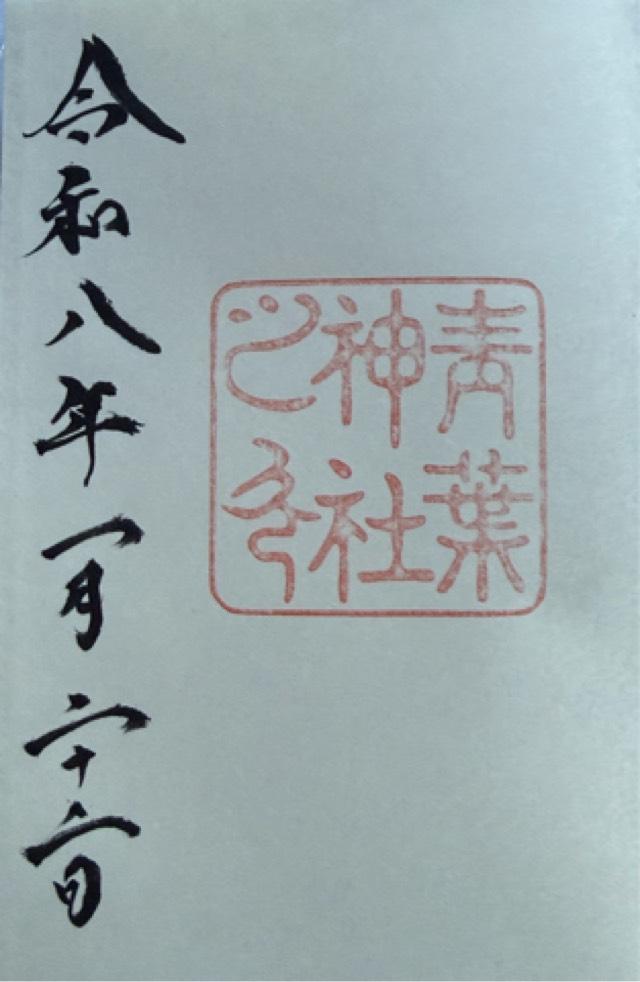 青葉
神社
之印
令和八年一月二十二日